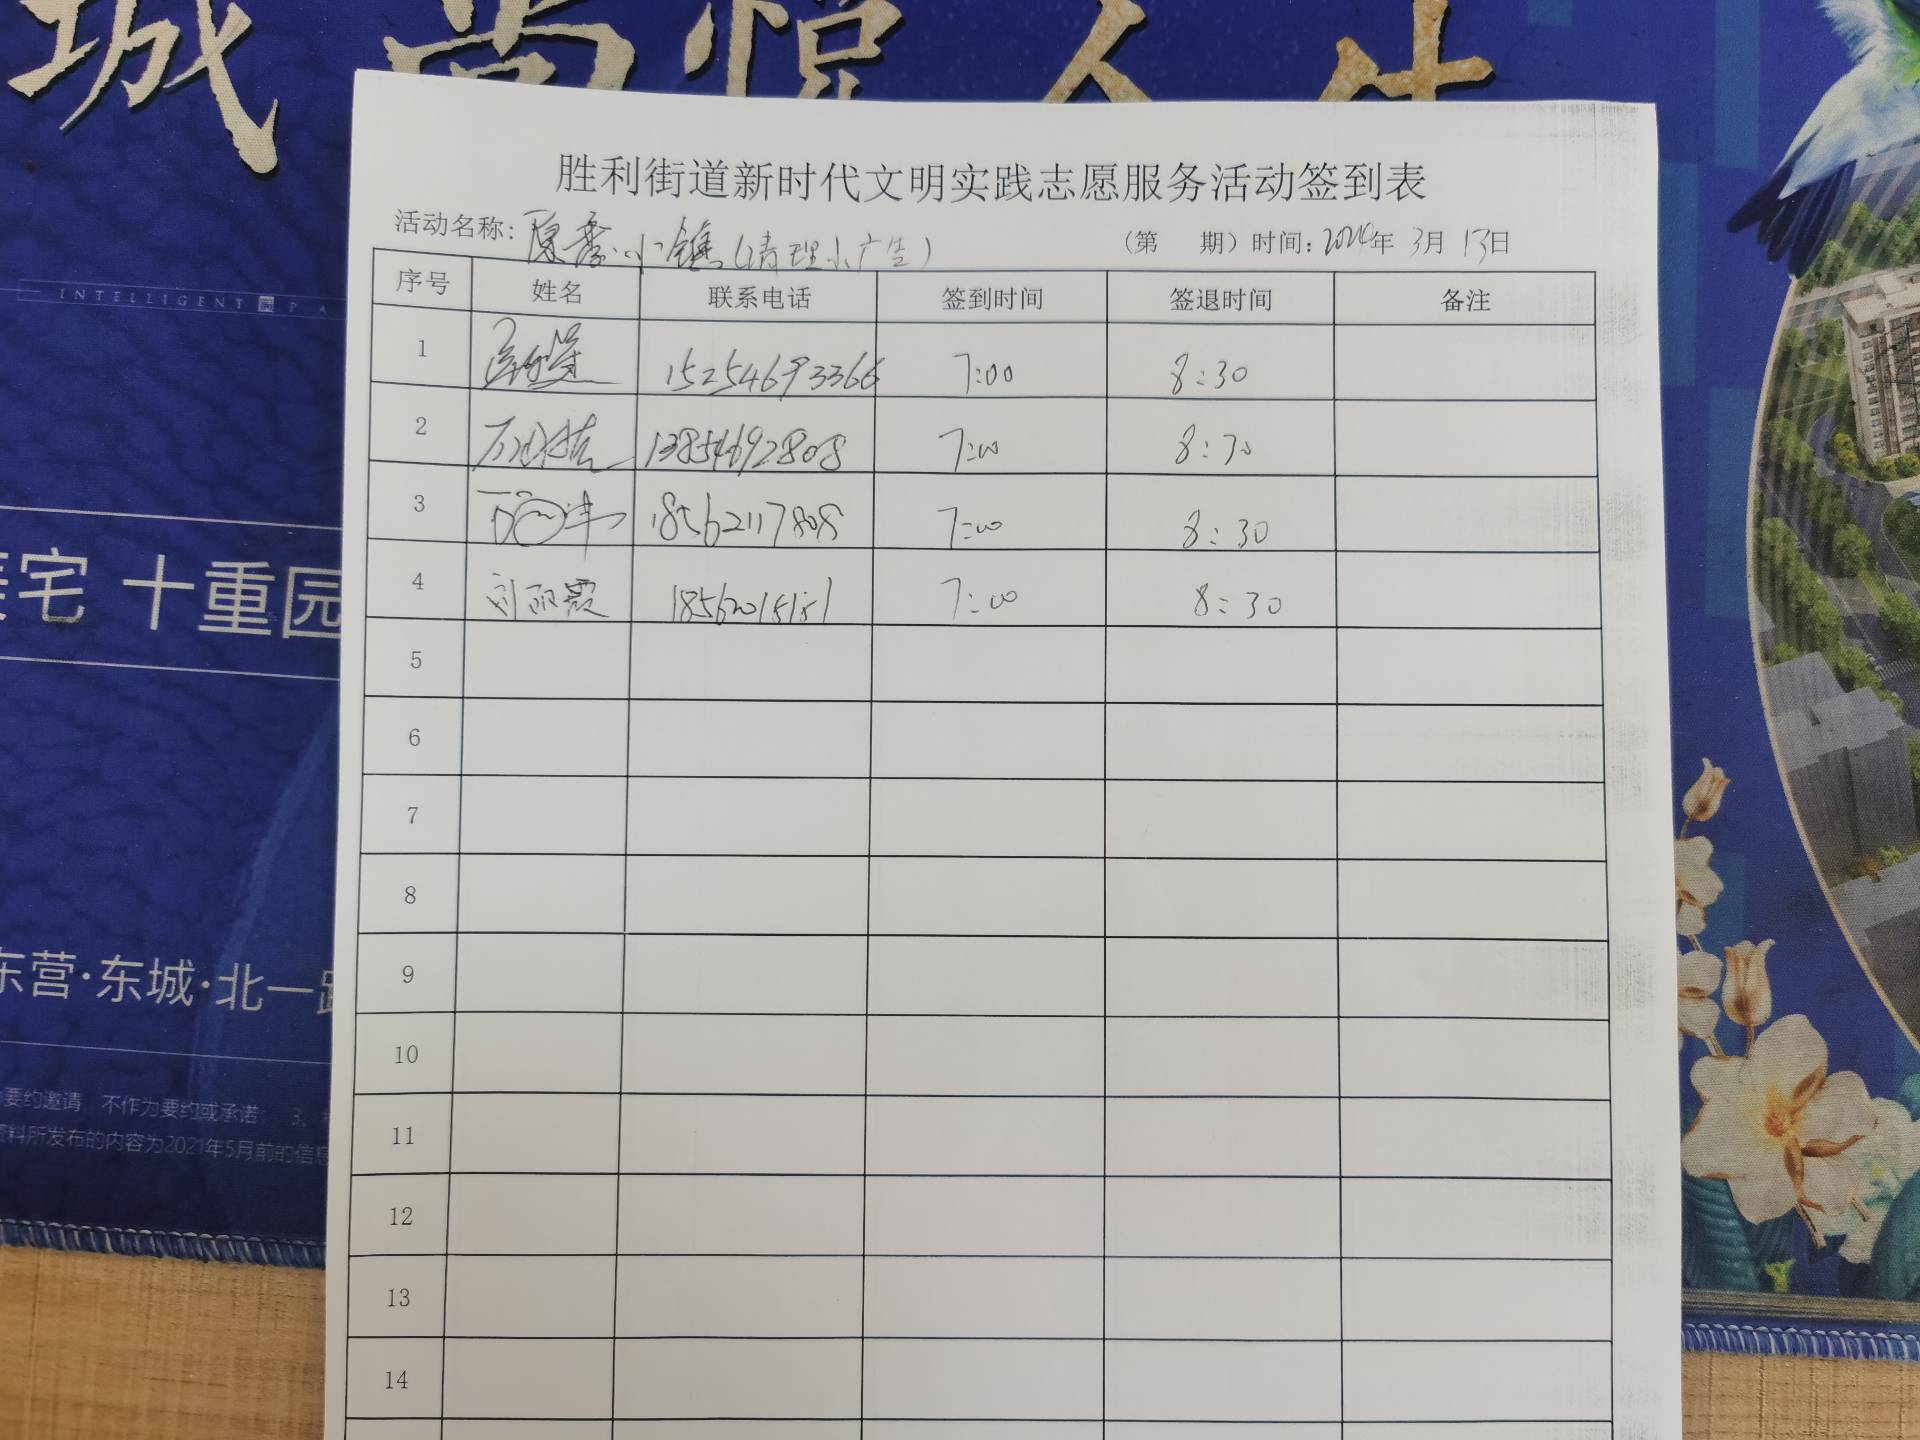 城 尚 悦 人 生
INTELLIGENT PA
宅 十重园
东营·东城·北一路
要约邀请 不作为要约或承诺; 3、
资料所发布的内容为2021年5月前的信息
胜利街道新时代文明实践志愿服务活动签到表
活动名称: 小 (清理小广告) (第 期) 时间: 2024年 3月 13日
序号 姓名 联系电话 签到时间 签退时间 备注
1 15254693366 7:00 8:30
2 13854692808 7:00 8:30
3 18562117808 7:00 8:30
4 刘丽霞 18562015151 7:00 8:30
5
6
7
8
9
10
11
12
13
14